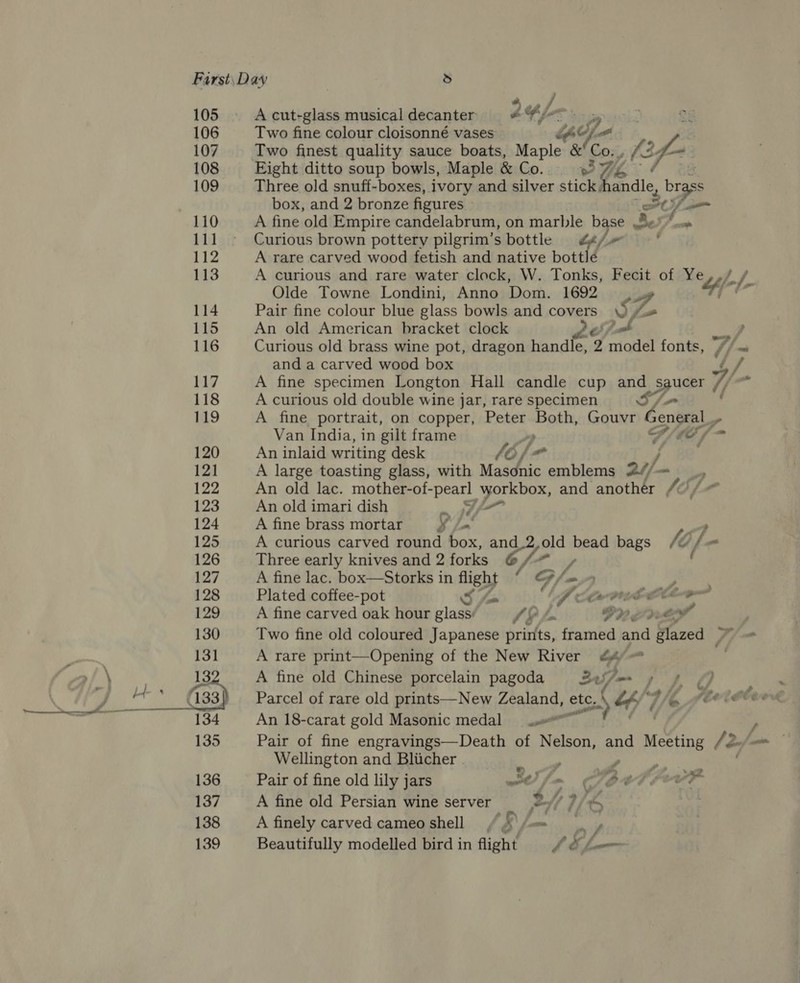 First Day 5
105 A cut-glass musical decanter
106 Two fine colour cloisonné vases
107 Two finest quality sauce boats, Maple & Co.
108 Eight ditto soup bowls, Maple & Co.
109 Three old snuff-boxes, ivory and silver stick handle, brass
box, and 2 bronze figures
110 A fine old Empire candelabrum, on marble base
111 Curious brown pottery pilgrim's bottle
112 A rare carved wood fetish and native bottle
113 A curious and rare water clock, W. Tonks, Fecit of Ye
Olde Towne Londini, Anno Dom. 1692
114 Pair fine colour blue glass bowls and covers
115 An old American bracket clock
116 Curious old brass wine pot, dragon handle, 2 model fonts,
and a carved wood box
117 A fine specimen Longton Hall candle cup and saucer
118 A curious old double wine jar, rare specimen
119 A fine portrait, on copper, Peter Both, Gouvr General
Van India, in gilt frame
120 An inlaid writing desk
121 A large toasting glass, with Masonic emblems
122 An old lac. mother-of-pearl workbox, and another
123 An old imari dish
124 A fine brass mortar
125 A curious carved round box, and 2 old bead bags
126 Three early knives and 2 forks
127 A fine lac. box—Storks in flight
128 Plated coffee-pot
129 A fine carved oak hour glass
130 Two fine old coloured Japanese prints, framed and glazed
131 A rare print—Opening of the New River
132 A fine old Chinese porcelain pagoda
133 Parcel of rare old prints—New Zealand, etc.
134 An 18-carat gold Masonic medal
135 Pair of fine engravings—Death of Nelson, and Meeting
Wellington and Blücher
136 Pair of fine old lily jars
137 A fine old Persian wine server
138 A finely carved cameo shell
139 Beautifully modelled bird in flight